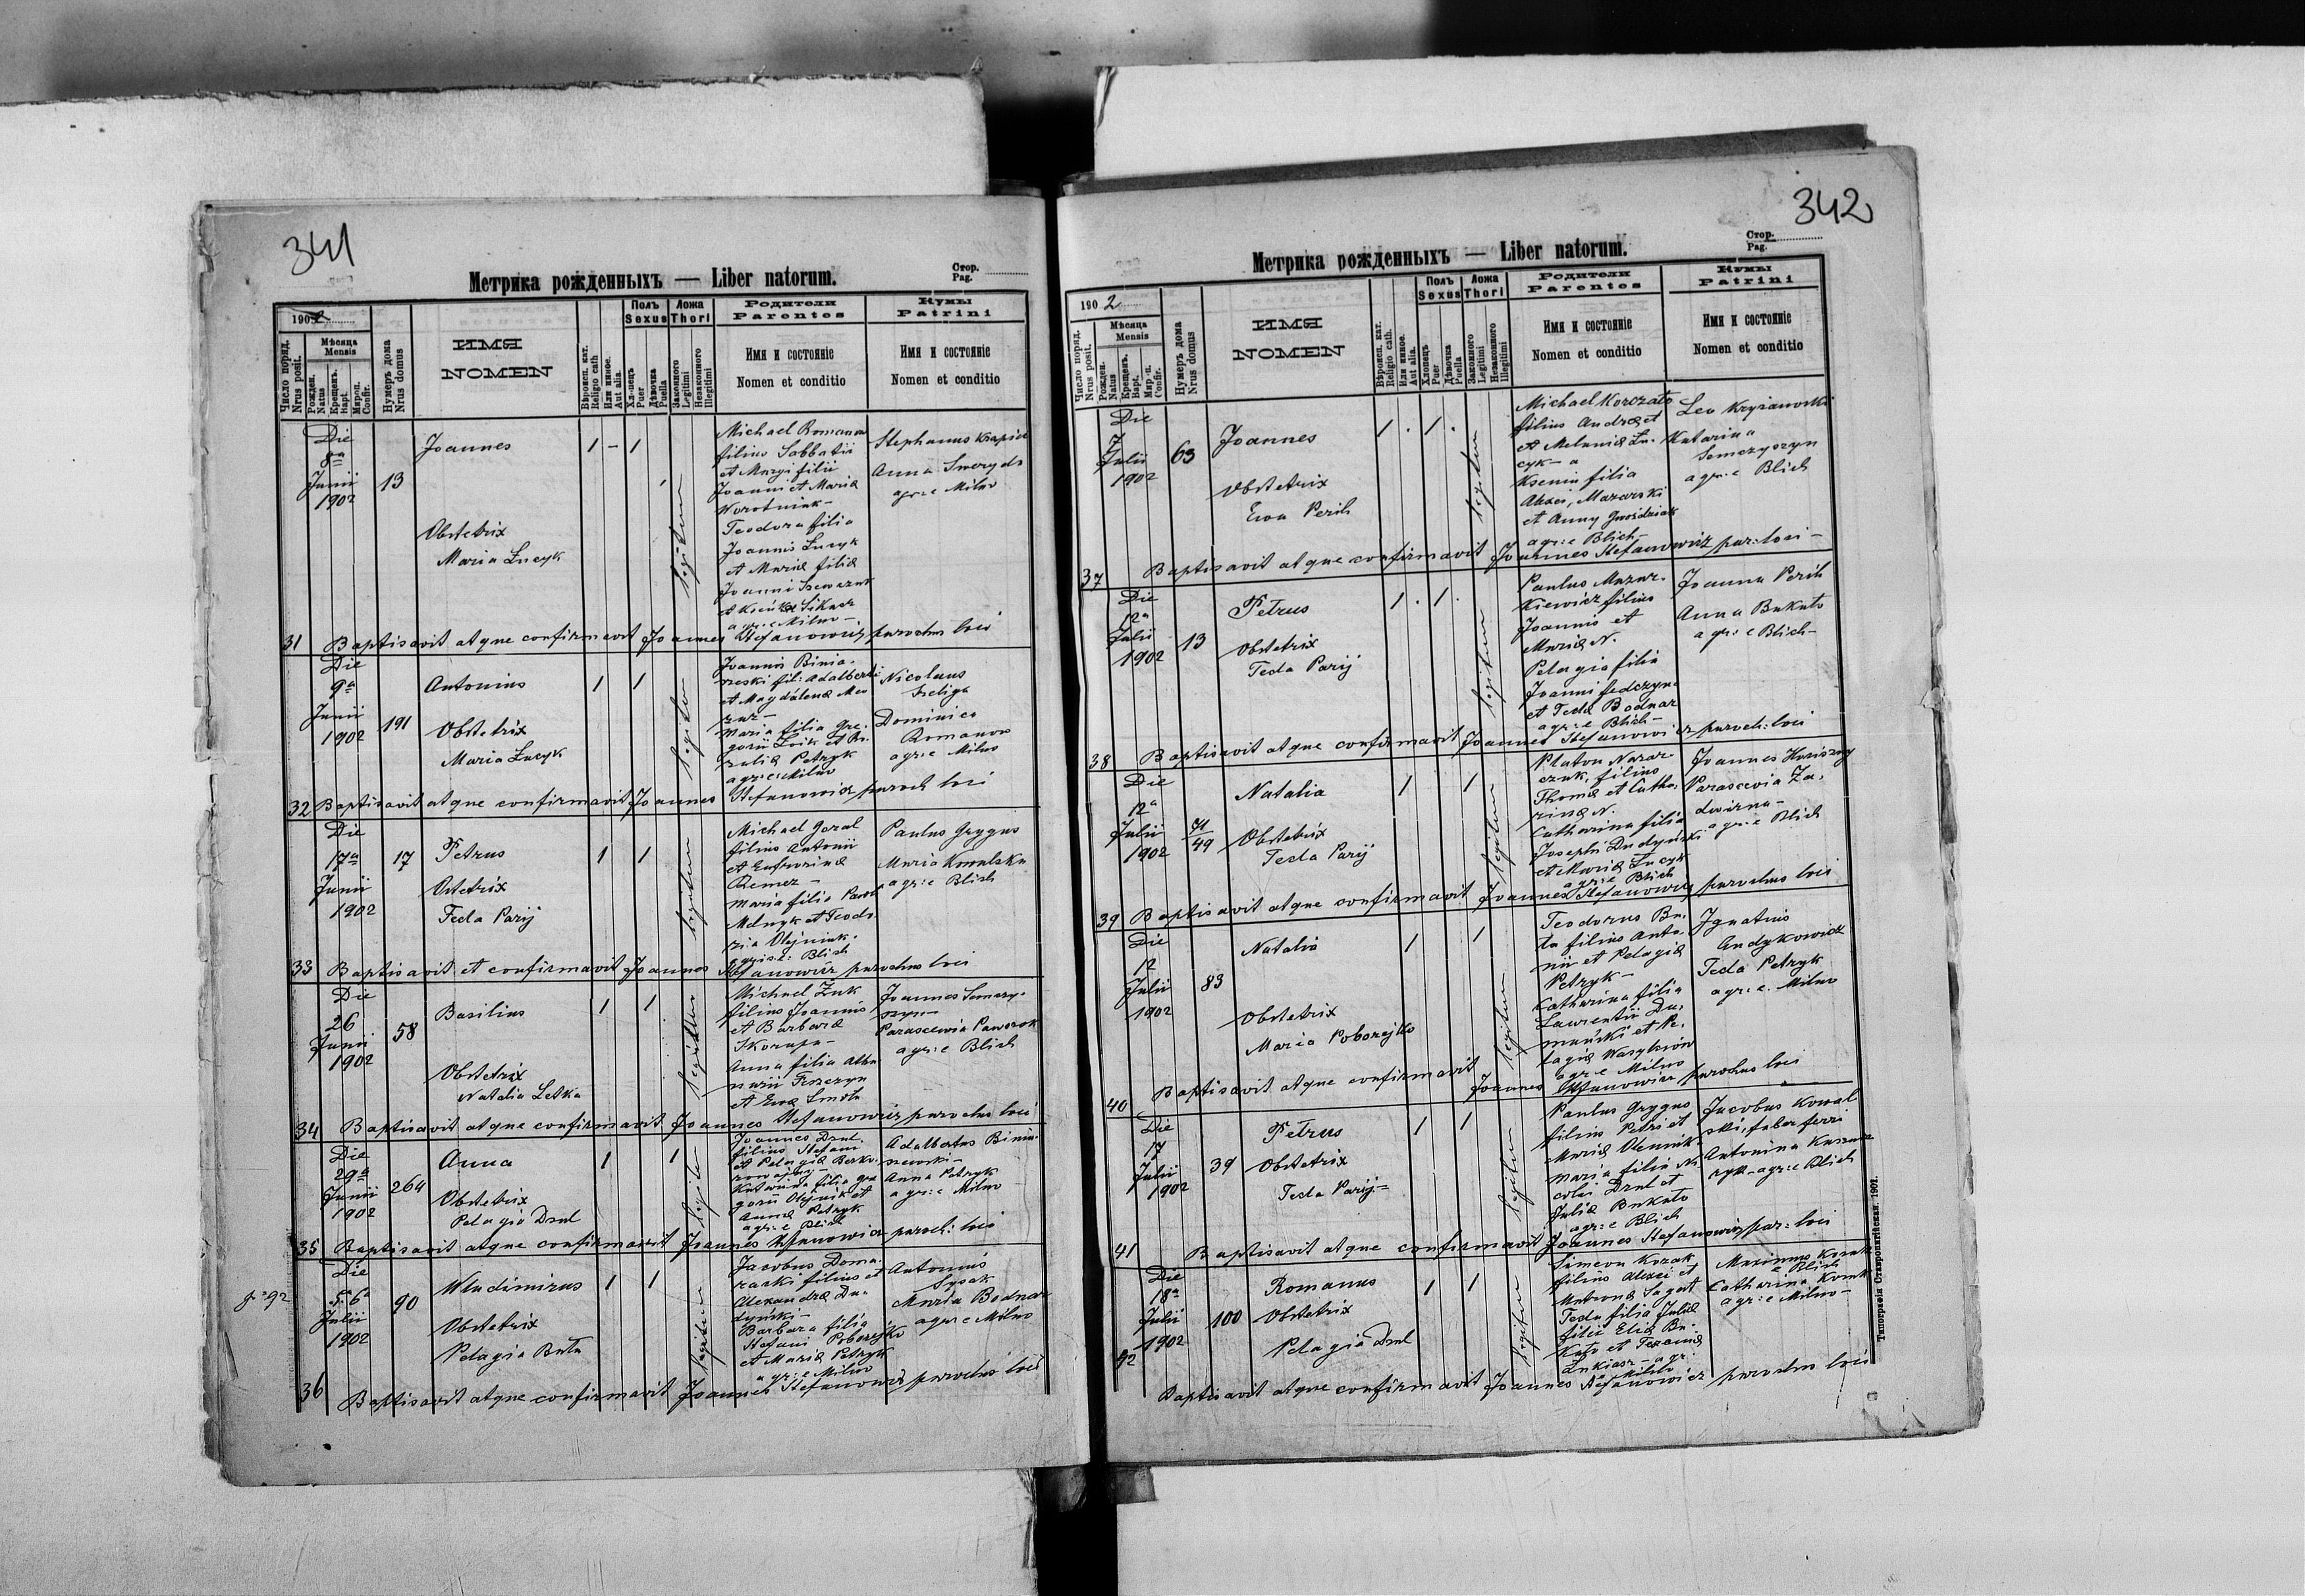 341
Метрика рожденныхъ — Liber natorum.
Стор.
Pag.
190
Число поряд.
Nrus posit.
Мѣсяца
Mensis
Рожден.
Natus
Крещенъ.
Bapt.
Мѵроп.
Confir.
Нумеръ дома
Nrus domus
ИМЯ
NOMEN
Вѣроисп. кат.
Religio cath
Или иное.
Aut alia.
Полъ
Sexus
Хлопецъ
Puer
Дѣвочка
Puella
Ложа
Thori
Законного
Legitimi
Незаконного
Illegitimi
Родители
Parentes
Имя и состояніе
Nomen et conditio
Кумы
Patrini
Имя и состояніе
Nomen et conditio
Die
8ª
Junii
1902
13
Joannes
Obstetrix
Maria Łucyk
1 - 1
legitimi
Michael Romanow
filius Sabbatii
et Maryi filii
Joanni et Maria
Worotniak -
Teodora filia
Joannis Łucyk
et Maria filia
Joanni
agr: e Milno -
Stephanus
Anna
agr: e Milno
31 Baptisavit atque confirmavit Joannes Stefanowicz parochus loci
Die
9ª
Junii
1902
191
Antonius
Obstetrix
Maria Łucyk
1 1
Joannis Binia-
szeski fil: Adalberti
et Magdalena Ma
zur -
Maria filia Gre-
gorii Łoik et Ro-
zalia Petryk
agr: e Milno
Nicolaus
Feliga
Dominica
Romanow
agr: e Milno
32 Baptisavit atque confirmavit Joannes Stefanowicz paroch loci
Die
17ª
Junii
1902
17
Petrus
Obstetrix
Tecla Parij
1 1
legitimi
Michael Goral
filius Antonii
et Eufrosina
Remez -
Maria filia Pauli
Melnyk et Teodo
zia Olejniuk -
agr: e: Blich
Paulus Grygus
Maria Kowalska
agr: e Blich
33 Baptisavit et confirmavit Joannes Stefanowicz parochus loci
Die
26
Junii
1902
58
Basilius
Obstetrix
Natalia Letka
1 1
Michael Żuk
filius Joannis
et Barbara
Skorupa -
Anna filia Atha
nazii Feszczyn
et Eva Smola
Joannes Semczy-
szyn -
Parascewia
agr: e Blich
34 Baptisavit atque confirmavit Joannes Stefanowicz parochus loci
Die
29ª
Junii
1902
264
Anna
Obstetrix
Pelagia Drul
1 1
Joannes Drul
filius Stefani
et Pelagia Berko-
Katarina filia Gre
gorii Olejnik et
Anna Petryk
agr: e Blich
Adalbertus Binia-
szewski -
Anna Petryk
agr: e Milno
35 Baptisavit atque confirmavit Joannes Stefanowicz paroch: loci
Die
5. 6ª
Julii
1902
90
Wladimirus
Obstetrix
Pelagia Buta
1 1
Jacobus Doma-
racki filius et
Alexandra Du-
dyński -
Barbara filia
Stefani Poborejko
et Maria Petryk
agr: e Milno
Antonius
Sysak
Maria Bodnar
agr: e Milno
36 Baptisavit atque confirmavit Joannes Stefanowicz parochus loci
342
Метрика рожденныхъ — Liber natorum.
Стор.
Pag.
190 2
Число поряд.
Nrus posit.
Мѣсяца
Mensis
Рожден.
Natus
Крещенъ.
Bapt.
Мѵроп.
Confir.
Нумеръ дома
Nrus domus
ИМЯ
NOMEN
Вѣроисп. кат.
Religio cath.
Или иное.
Aut alia.
Полъ
Sexus
Хлопецъ
Puer
Дѣвочка
Puella
Ложа
Thori
Законного
Legitimi
Незаконного
Illegitimi
Родители
Parentes
Имя и состояніе
Nomen et conditio
Кумы
Patrini
Имя и состояніе
Nomen et conditio
Die
7
Julii
1902
63
Joannes
Obstetrix
Ewa Perih
1 . 1 .
Michael Korczato
filius Andrea et
et Melania Łu-
cyk - a
Ksenia filia
Alexei, Mazurski
et Anny Gwoździak
agr: e Blich -
Leo Kryżanowski
Katarina
Semczyszyn
agr: e Blich
37 Baptisavit atque confirmavit Joannes Stefanowicz par: loci -
Die
12ª
Julii
1902
13
Petrus
Obstetrix
Tecla Parij
1 . 1 .
Paulus Mazur-
kiewicz filius
Joannis et
Maria N.
Pelagia filia
Joanni Fedczyn
et Tecla Bodnar
agr: e Blich -
Joanna Perih
Anna Bukato
agr: e Blich -
38 Baptisavit atque confirmavit Joannes Stefanowicz paroch: loci
Die
12ª
Julii
1902
71
49
Natalia
Obstetrix
Tecla Parij
1 1
Platon Nazar-
czuk, filius
Thoma et Catha-
rina N.
Catharina filia
Josephi Dudyński
et Maria Łucyk
agr: e Blich
Joannes
Parascevia Za-
dwirna -
agr: e Blich
39 Baptisavit atque confirmavit Joannes Stefanowicz parochus loci
Die
12
Julii
1902
83
Natalia
Obstetrix
Maria Poborejko
1 1
Teodorus Bu-
ta filius Anto-
nii et Pelagia
Petryk -
Catharina filia
Laurentii Du-
mański et Pe-
lagia Wasylków
agr: e Milno
Ignatius
Andykowicz
Tecla Petryk
agr: e. Milno
40 Baptisavit atque confirmavit Joannes Stefanowicz parochus loci
Die
17
Julii
1902
39
Petrus
Obstetrix
Tecla Parij =
1 1
Paulus Grygus
filius Petri et
Maria Olejnik -
Maria filia Ni-
colai Drul et
Julia Bukato
agr: e Blich
Jacobus Kowal
ski, faber ferri
Antonina
agr: e Blich
41 Baptisavit atque confirmavit Joannes Stefanowicz par: loci
Die
18ª
Julii
1902
100
Romanus
Obstetrix
Pelagia Drul
1 1
Simeon Kozak
filius Alexei et
Matrona Sagat
Tecla filia Julia
filii Elia Bu-
kato et Texania
Łukiasz - agr:
e Milno
Maximus Kozak
e Blich
Catharina Kozak
agr: e Milno -
42
Baptisavit atque confirmavit Joannes Stefanowicz parochus loci
Типографія Ставропигійская. 1901.